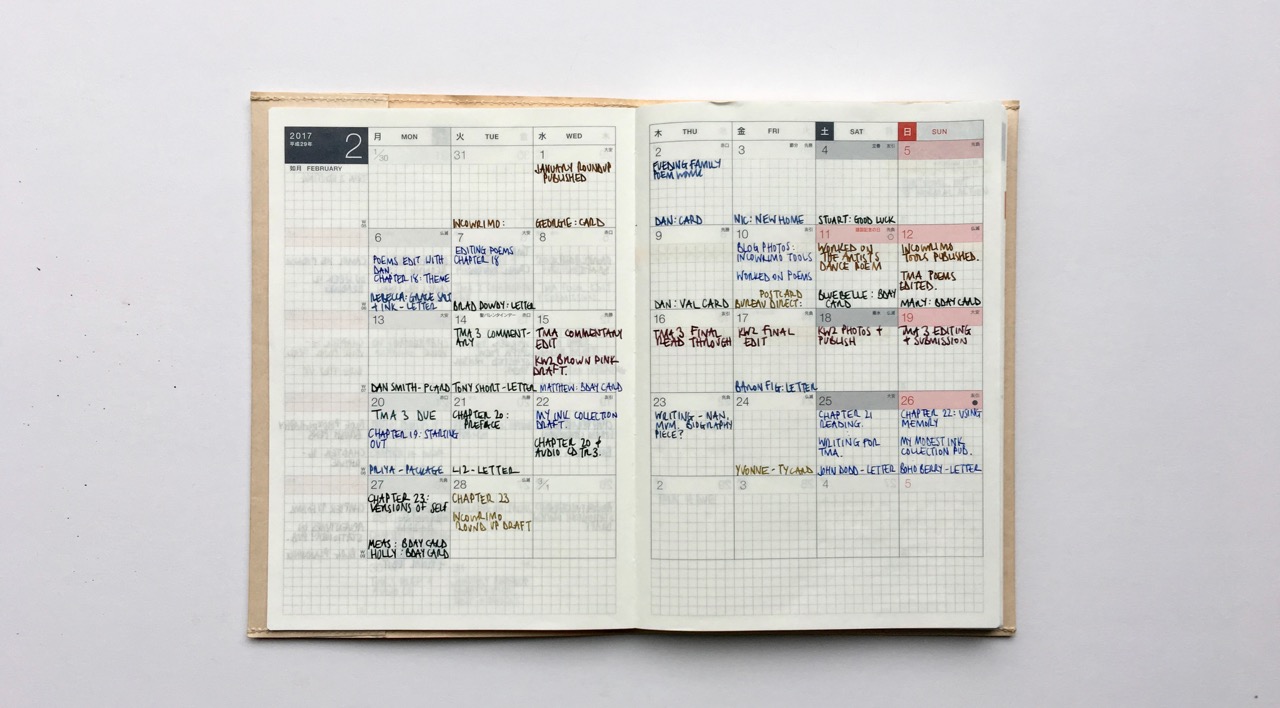 2017
平成29年
2
如月 FEBRUARY
月 MON
火 TUE
水 WED
木 THU
金 FRI
土 SAT
日 SUN
1/30
31
INCOWRIMO:
1
JANUARY ROUNDUP
PUBLISHED
GEORGIE: CARD
2
FUEDING FAMILY
POEM WORK
DAN: CARD
3
NIC: NEW HOME
4
STUART: GOOD LUCK
5
6
POEMS EDIT WITH
DAN
CHAPTER 18: THEME
+ INK - LETTER
7
EDITING POEMS
CHAPTER 18
BRAD DOWDY: LETTER
8
9
DAN: VAL CARD
10
BLOG PHOTOS:
INCOWRIMO TOOLS
WORKED ON POEMS
POSTCARD
BUREAU DIRECT:
11
建国記念の日
WORKED ON
THE ARTISTS
DANCE POEM
BLUEBELLE: BDAY
CARD
12
INCOWRIMO
TOOLS PUBLISHED.
TMA POEMS
EDITED.
MARY: BDAY CARD
13
DAN SMITH - PCARD
14
聖バレンタインデー
TMA 3 COMMENT-
ARY
TONY SHORT - LETTER
15
TMA COMMENTARY
EDIT
KW2 BROWN PINK
DRAFT.
MATTHEW: BDAY CARD
16
TMA 3 FINAL
READ THROUGH
17
KW2 FINAL
EDIT
BARON FIG: LETTER
18
KW2 PHOTOS +
PUBLISH
19
TMA 3 EDITING
+ SUBMISSION
20
TMA 3 DUE
CHAPTER 19: STARTING
OUT
PRIYA - PACKAGE
21
CHAPTER 20:
PREFACE
LIZ - LETTER
22
MY INK COLLECTION
DRAFT.
CHAPTER 20 +
AUDIO CD TR3.
23
WRITING - NAN,
MUM, BIOGRAPHY
PIECE?
24
YVONNE - TY CARD
25
CHAPTER 21
READING.
WRITING FOR
TMA.
JOHN DODD - LETTER
26
CHAPTER 22: USING
MEMORY
MY MODEST INK
COLLECTION PUB.
BOHO BERRY - LETTER
27
CHAPTER 23:
VERSIONS OF SELF
MEAS: BDAY CARD
HOLLY: BDAY CARD
28
CHAPTER 23
INCOWRIMO
ROUND UP DRAFT
3/1
2
3
4
5